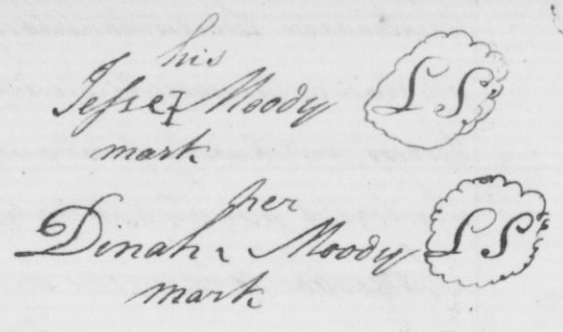 his
Jesse Moody LS
mark
her
Dinah Moody LS
mark